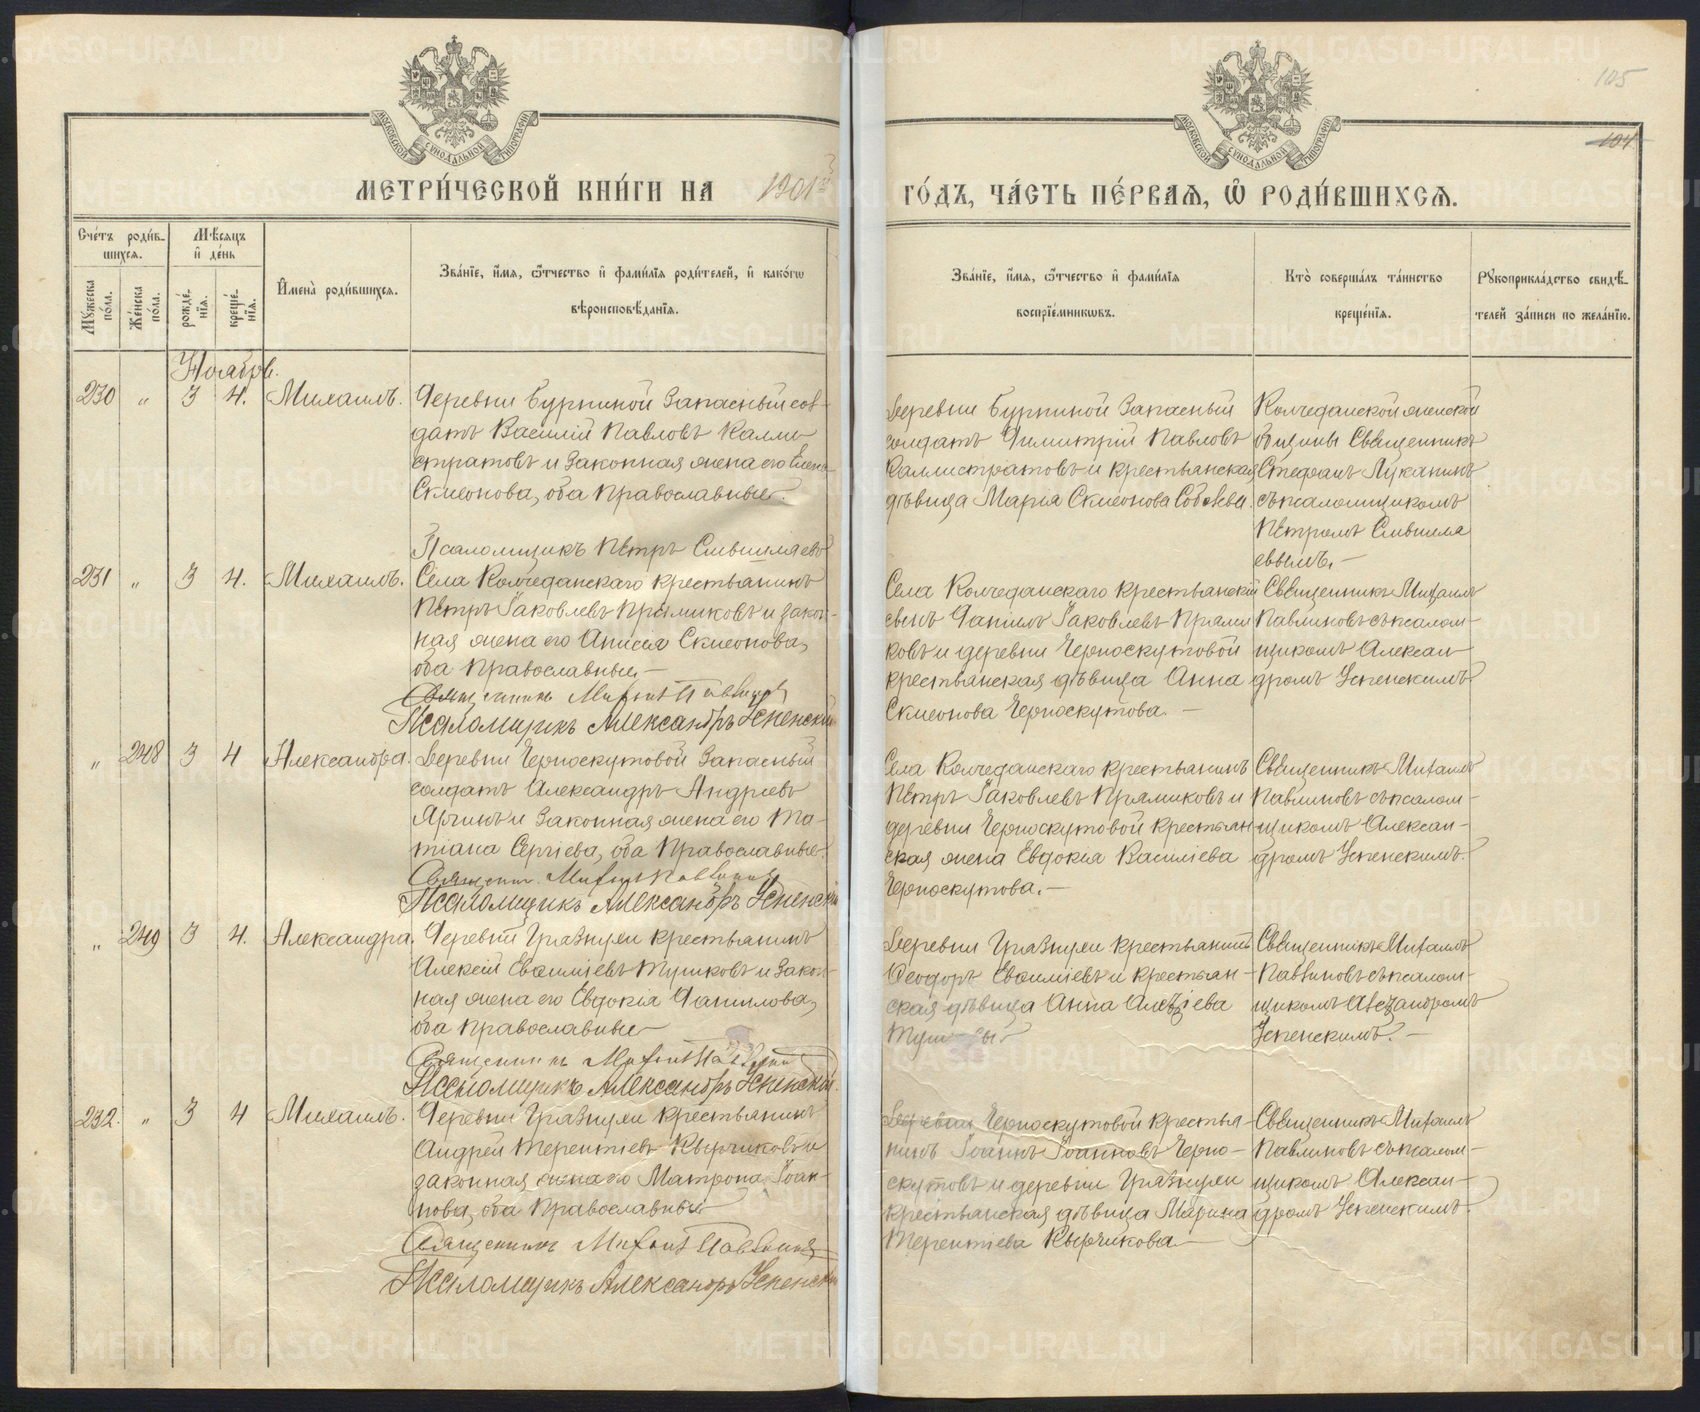 МЕТРИ́ЧЕСКОЙ КНИ́ГИ НА 1901
ГО́ДЪ, ЧА́СТЬ ПЕ́РВАЯ, Ѽ РОДИ́ВШИХСЯ.
105
104
Сче́тъ роди́в-
шихся.
Мѣ́сяцъ
и҆ де́нь
Му́жеска
по́ла.
Же́нска
по́ла.
рожде́-
нїя.
креще́-
нїя.
И҆мена̀ роди́вшихся.
Зва́нїе, и҆́мя, ѻ҆́тчество и҆ фами́лїя роди́телей, и҆ како́гѡ
вѣроисповѣ́данїя.
Зва́нїе, и҆́мя, ѻ҆́тчество и҆ фами́лїя
воспрїе́мникѡвъ.
Кто̀ соверша́лъ та́инство
креще́нїя.
Рꙋкоприкла́дство свидѣ́-
телей за́писи по жела́нїю.
Ноябрь.
230 " 3 4. Михаилъ.
Деревни Бурниной Запасный сол-
датъ Василій Павловъ Калли-
стратовъ и законная жена его Елена
Симеонова, оба православные.
Псаломщикъ Петръ Смышляевъ
Деревни Бурниной Запасный
солдатъ Димитрій Павловъ
Каллистратовъ и крестьянская
дѣвица Марія Симеонова
Колчеданской женской
общины Священникъ
Стефанъ Луканинъ
съ псаломщикомъ
Петромъ Смышля
евымъ.
231 " 3 4. Михаилъ.
Села Колчеданскаго крестьянинъ
Петръ Іаковлевъ Пряниковъ и закон-
ная жена его Анисія Симеонова,
оба православные
Священникъ Михаилъ Павлиновъ
Псаломщикъ Александръ Успенскій
Села Колчеданскаго крестьянскій
сынъ Даніилъ Іаковлевъ Пряни
ковъ и деревни Черноскутовой
крестьянская дѣвица Анна
Симеонова Черноскутова.
Священникъ Михаилъ
Павлиновъ съ псалом-
щикомъ Алексан-
дромъ Успенскимъ
" 248 3 4 Александра.
Деревни Черноскутовой Запасный
солдатъ Александръ Андреевъ
Ярчинъ и законная жена его Та-
тіана Сергіева, оба православные.
Священник. Михаилъ Павлиновъ
Псаломщикъ Александръ Успенскій
Села Колчеданскаго крестьянинъ
Петръ Іаковлевъ Пряниковъ и
деревни Черноскутовой крестьян-
ская жена Евдокія Василіева
Черноскутова.
Священникъ Михаилъ
Павлиновъ съ псалом-
щикомъ Алексан-
дромъ Успенскимъ.
" 249 3 4. Александра.
Деревни Грязнухи крестьянинъ
Алексій Евсиміевъ Тушковъ и закон-
ная жена его Евдокія Данилова,
оба православные
Священникъ Михаилъ Павлиновъ
Псаломщикъ Александръ Успенскій.
Деревни Грязнухи крестьянинъ
Ѳеодоръ и крестьян-
ская дѣвица Анна Алексіева
Священникъ Михаилъ
Павлиновъ съ псалом-
щикомъ Александромъ
Успенскимъ.
232. " 3 4 Михаилъ.
Деревни Грязнухи крестьянинъ
Андрей Терентіевъ Кырчиковъ и
законная жена его Матрона Іоан-
нова, оба православные
Священникъ Михаилъ Павлиновъ
Псаломщикъ Александръ Успенскій
Деревни Черноскутовой крестья-
нинъ Іоаннъ Іоанновъ Черно-
скутовъ и деревни Грязнухи
крестьянская дѣвица Марина
Терентіева Кырчикова
Священникъ Михаилъ
Павлиновъ съ псалом-
щикомъ Алексан-
дромъ Успенскимъ.
METRIKI.GASO-URAL.RU